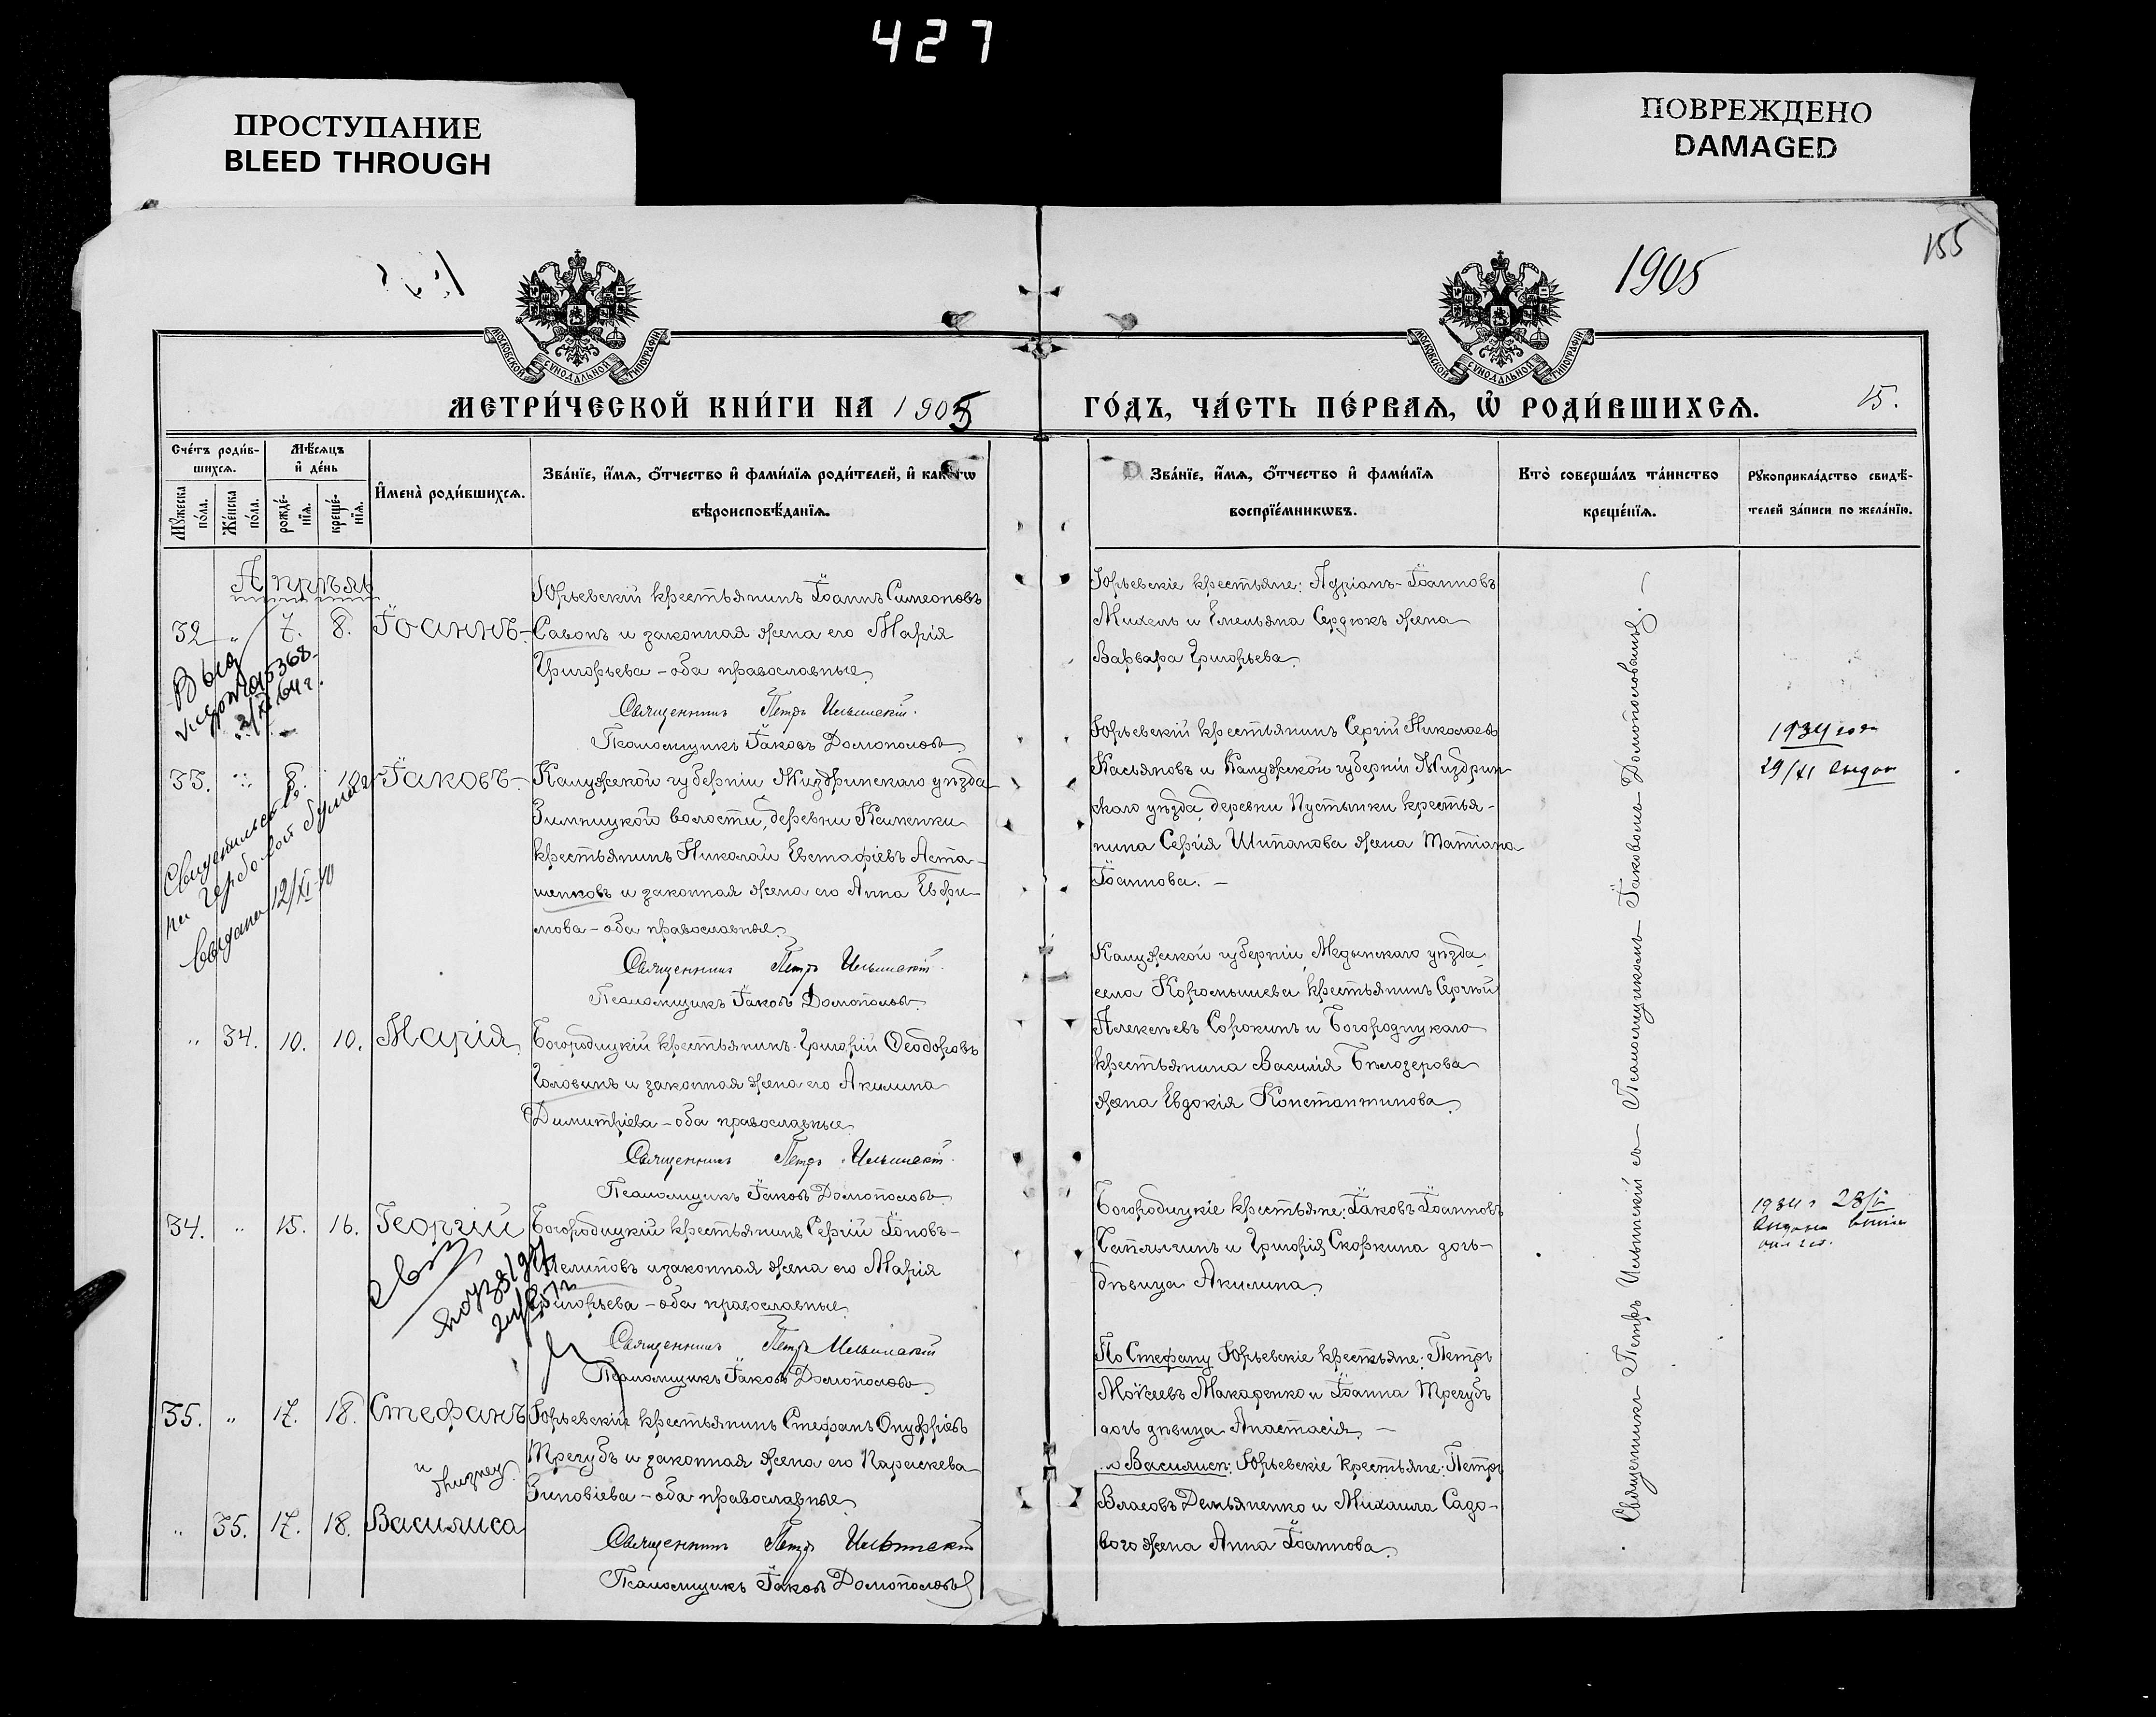 427
ПРОСТУПАНИЕ
BLEED THROUGH
ПОВРЕЖДЕНО
DAMAGED
1905
155
МОСКОВСКОЙ СУНОДАЛЬНОЙ ТИПОГРАФІИ
МОСКОВСКОЙ СУНОДАЛЬНОЙ ТИПОГРАФІИ
МЕТРИ́ЧЕСКОЙ КНИ́ГИ НА 1905
ГО́ДЪ, ЧА́СТЬ ПЕ́РВАѦ, Ѡ҆ РОДИ́ВШИХСѦ.
15.
Сче́тъ роди́в-
шихсѧ.
Мѣ́сѧцъ
и҆ де́нь
Мꙋ́жеска по́ла.
Же́нска по́ла.
рожде́-
нїѧ.
креще́-
нїѧ.
И҆мена̀ роди́вшихсѧ.
Зва́нїе, и҆́мѧ, ѻ҆́тчество и҆ фами́лїѧ роди́телей, и҆ како́гѡ
вѣроисповѣ́данїѧ.
Зва́нїе, и҆́мѧ, ѻ҆́тчество и҆ фами́лїѧ
воспрїе́мникѡвъ.
Кто̀ соверша́лъ та́инство
креще́нїѧ.
Рꙋкоприкла́дство свидѣ́-
телей за́писи по жела́нїю.
Апрѣль
32 " 7. 8. Іоаннъ-
Юрьевскій крестьянинъ Іоаннъ Симеоновъ
Савонъ и законная жена его Марія
Григорьева - оба православные
Священникъ Петръ Ильинскій.
Псаломщикъ Іаковъ Домополовъ
Юрьевскіе крестьяне: Адріанъ Іоанновъ
Михель и Емельяна Сердюкъ жена
Варвара Григорьева
33. " 8. 10. Іаковъ-
Калужской губерніи Жиздринскаго уѣзда
Зимницкого волости, деревни
крестьянинъ Николай Евстафіевъ Аста-
шенковъ и законная жена его Анна Ефи-
мова - оба православные.
Священникъ Петръ Ильинскій.
Псаломщикъ Іаковъ Домополовъ
Свидетельство
на гербовой бумаге
выдано 12/XI-40
Юрьевскій крестьянинъ Сергій Николаевъ
Касьяновъ и Калужской губерніи Жиздрин
скаго уѣзда, деревни Пустынки крестья-
нина Сергія Шипанова жена Татіана
Іоаннова. -
1934 года
29/XI выдан
" 34. 10. 10. Марія
Богородицкій крестьянинъ Григорій Ѳеодоровъ
Головинъ и законная жена его Акилина
Димитріева - оба православные
Священникъ Петръ Ильинскій.
Псаломщикъ Іаковъ Домополовъ
Калужской губерніи Медынскаго уѣзда
села крестьянинъ Сергѣй
Алексѣевъ Сорокинъ и Богородицкаго
крестьянина Василія Бѣлозерова
жена Евдокія Константинова
34. " 15. 16. Георгій
Богородицкій крестьянинъ Сергій Іоновъ-
и законная жена его Марія
Григорьева - оба православные
Священникъ Петръ Ильинскій
Псаломщикъ Іаковъ Домополовъ
Богородицкіе крестьяне: Іаковъ Іоанновъ
и Григорія Скоркина дочь-
дѣвица Акилина
35. " 17. 18. Стефанъ
и
" 35. 17. 18. Василиса
Юрьевскій крестьянинъ Стефанъ Онуфріевъ
Трегубъ и законная жена его Параскева
Зиновіева - оба православные
Священникъ Петръ Ильинскій
Псаломщикъ Іаковъ Домополовъ
По Стефану Юрьевскіе крестьяне: Петръ
Моѵсеевъ Макаренко и Іоанна Трегубъ
дочь дѣвица Анастасія -
Василисѣ: Юрьевскіе крестьяне: Петръ
Власовъ Демьяненко и Михаила Садо-
вого жена Анна Іоаннова
Священникъ Петръ Ильинскій съ Псаломщикомъ Іаковомъ Домополовымъ